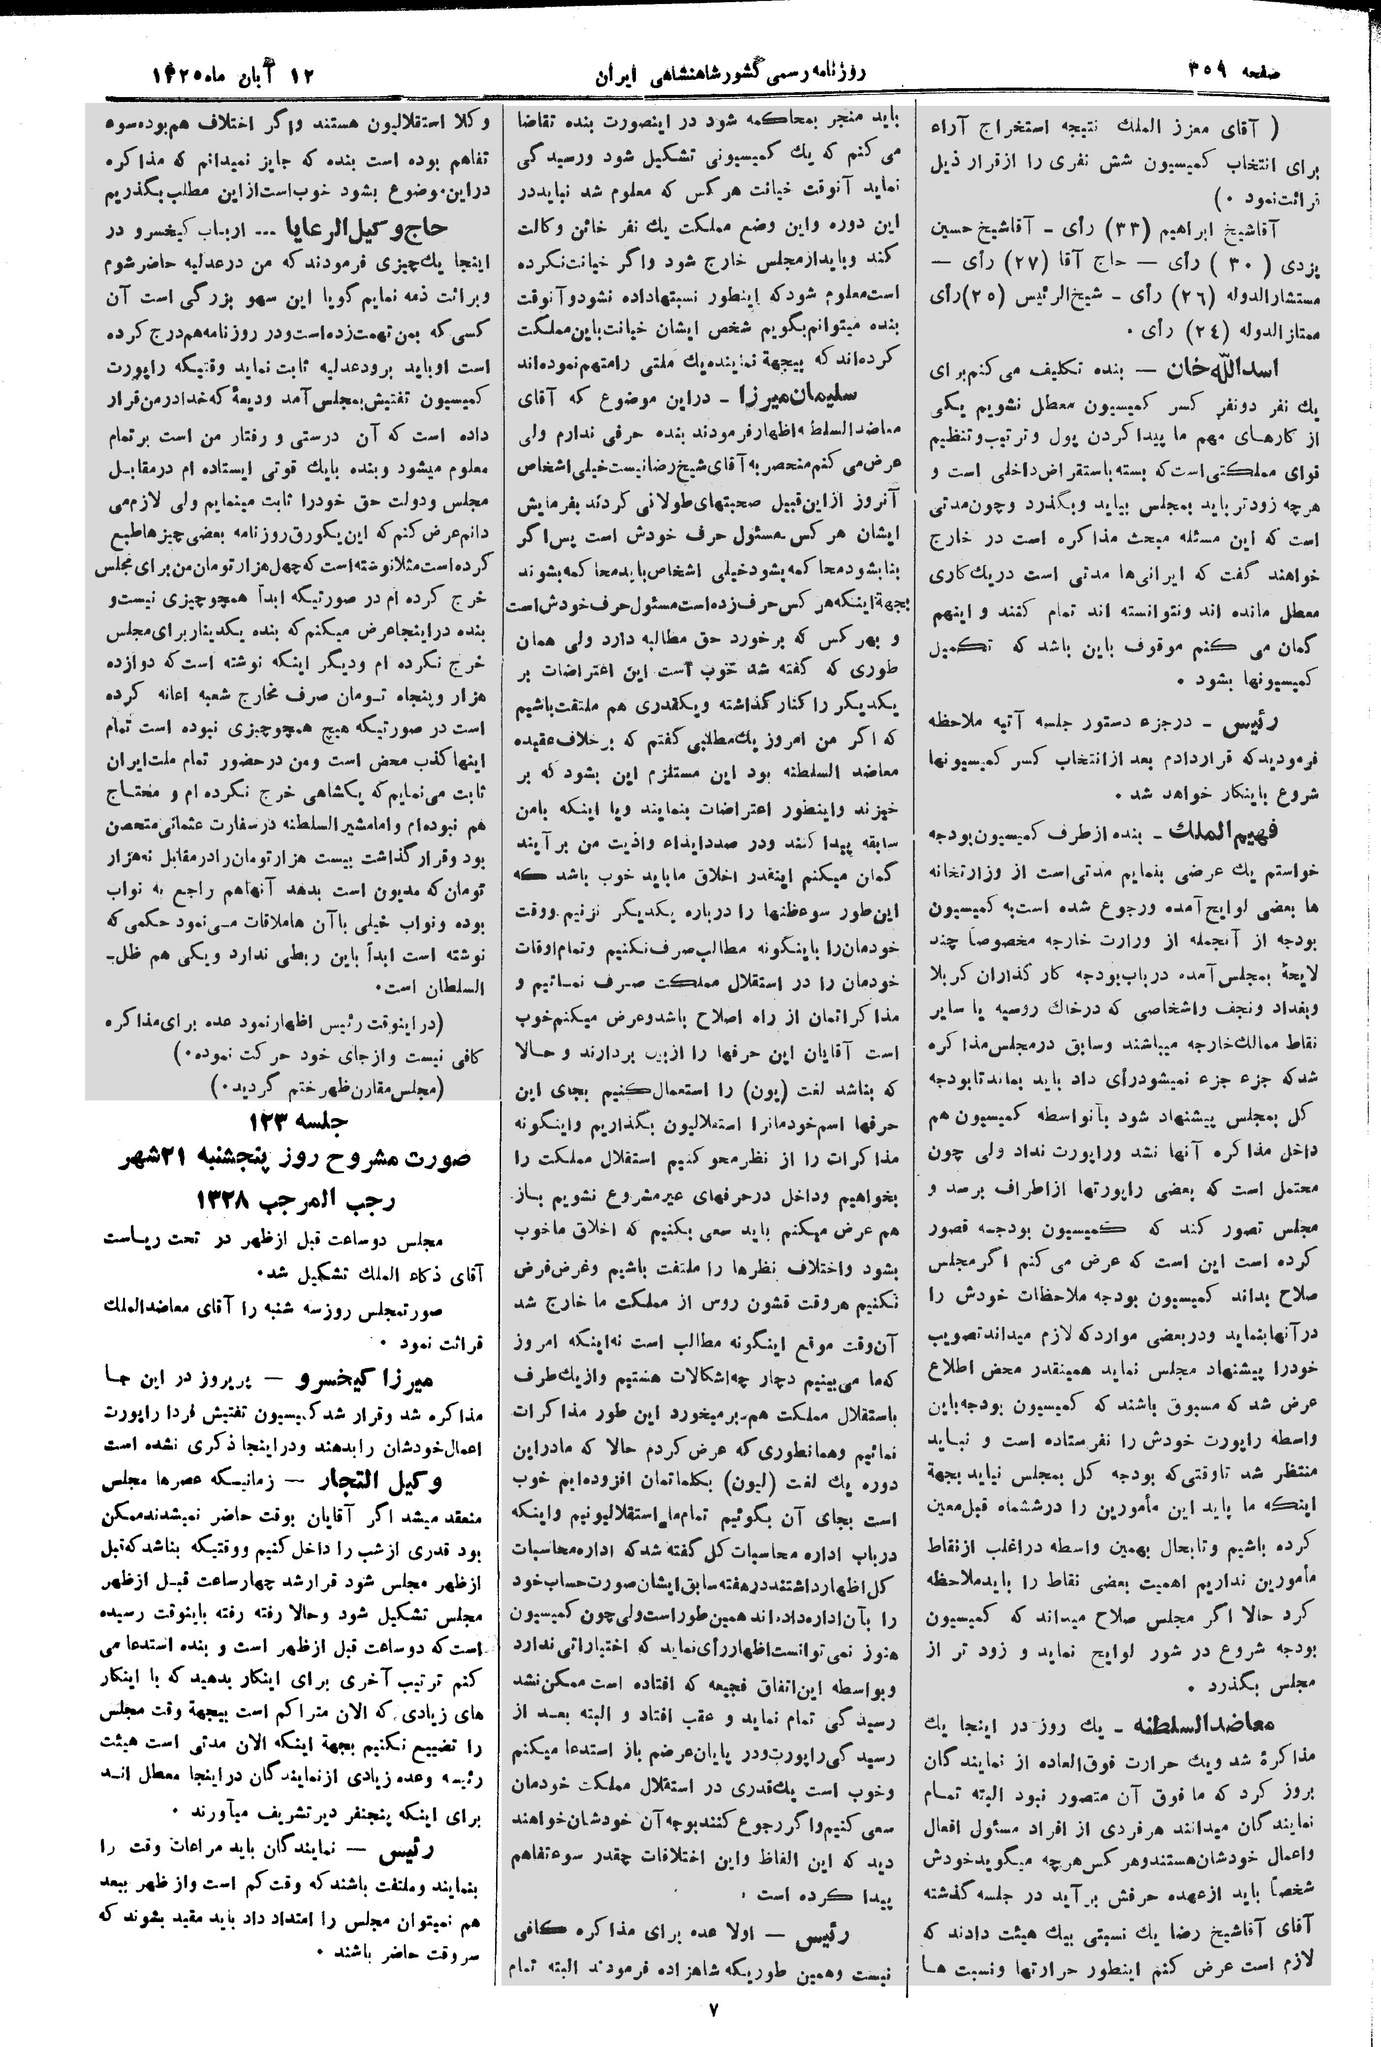 صفحه ۳۵۹
روزنامه رسمی کشور شاهنشاهی ایران
۱۲ آبان ماه ۱۳۲۵
( آقای معزز الملك نتیجه استخراج آراء
برای انتخاب کمیسیون شش نفری را از قرار ذیل
قرائت نمود ۰)
آقاشیخ ابراهیم (۳۳) رأی - آقاشیخ حسین
یزدی ( ۳۰ ) رأی — حاج آقا (۲۷) رأی —
مستشارالدوله (۲۶) رأی - شیخ الرئیس (۲۵) رأی
ممتازالدوله (۲۴) رأی ۰
اسدالله خان — بنده تکلیف می کنم برای
یك نفر دونفر کسر کمیسیون معطل نشویم یکی
از کارهای مهم ما پیدا کردن پول و ترتیب و تنظیم
قوای مملکتی است که بسته باستقراض داخلی است و
هرچه زودتر باید بمجلس بیاید وبگذرد وچون مدتی
است که این مسئله مبحث مذاکره است در خارج
خواهند گفت که ایرانی ها مدتی است دریك کاری
معطل مانده اند ونتوانسته اند تمام کنند و اینهم
گمان می کنم موقوف باین باشد که تکمیل
کمیسیونها بشود ۰
رئیس - درجزء دستور جلسه آتیه ملاحظه
فرمودید که قراردادم بعد از انتخاب کسر کمیسیونها
شروع باینکار خواهد شد ۰
فهیم الملك - بنده ازطرف کمیسیون بودجه
خواستم یك عرضی بنمایم مدتی است از وزارتخانه
ها بعضی لوایح آمده ورجوع شده است به کمیسیون
بودجه از آنجمله از وزارت خارجه مخصوصاً چند
لایحهٔ بمجلس آمده درباب بودجه کارگذاران کربلا
وبغداد ونجف واشخاصی که درخاك روسیه یا سایر
نقاط ممالك خارجه میباشند وسابق درمجلس مذاکره
شد که جزء جزء نمیشود رأی داد باید بماند تا بودجه
کل بمجلس پیشنهاد شود بآنواسطه کمیسیون هم
داخل مذاکره آنها نشد وراپورت نداد ولی چون
محتمل است که بعضی راپورتها ازاطراف برسد و
مجلس تصور کند که کمیسیون بودجه قصور
کرده است این است که عرض می کنم اگر مجلس
صلاح بداند کمیسیون بودجه ملاحظات خودش را
در آنها بنماید ودربعضی مواردکه لازم میداند تصویب
خودرا پیشنهاد مجلس نماید همینقدر محض اطلاع
عرض شد که مسبوق باشند که کمیسیون بودجه باین
واسطه راپورت خودش را نفرستاده است و نباید
منتظر شد تا وقتی که بودجه کل بمجلس نیاید بجهة
اینکه ما باید این مأمورین را درششماه قبل معین
کرده باشیم وتابحال بهمین واسطه دراغلب از نقاط
مأمورین نداریم اهمیت بعضی نقاط را باید ملاحظه
کرد حالا اگر مجلس صلاح میداند که کمیسیون
بودجه شروع در شور لوایح نماید و زود تر از
مجلس بگذرد ۰
معاضدالسلطنه - یك روز در اینجا یك
مذاکرهٔ شد ویك حرارت فوق العاده از نمایندگان
بروز کرد که مافوق آن متصور نبود البته تمام
نمایندگان میدانند هرفردی از افراد مسئول افعال
واعمال خودشان هستند وهر کس هرچه میگوید خودش
شخصاً باید ازعهده حرفش برآید در جلسه گذشته
آقای آقاشیخ رضا یك نسبتی بیك هیئت دادند که
لازم است عرض کنم اینطور حرارتها ونسبت ها
باید منجر بمحاکمه شود در اینصورت بنده تقاضا
می کنم که یك کمیسیونی تشکیل شود ورسیدگی
نماید آنوقت خیانت هر کس که معلوم شد نباید در
این دوره واین وضع مملکت یك نفر خائن وکالت
کند وباید از مجلس خارج شود واگر خیانت نکرده
است معلوم شود که اینطور نسبتها داده نشود و آنوقت
بنده میتوانم بگویم شخص ایشان خیانت باین مملکت
کرده اند که بیجهة نماینده یك ملتی را متهم نموده اند
سلیمان میرزا - دراین موضوع که آقای
معاضدالسلطنه اظهار فرمودند بنده حرفی ندارم ولی
عرض می کنم منحصر به آقای شیخ رضا نیست خیلی اشخاص
آنروز از این قبیل صحبتهای طولانی کردند بفرمایش
ایشان هر کس مسئول حرف خودش است پس اگر
بنا بشود محاکمه بشود خیلی اشخاص باید محاکمه بشوند
بجهة اینکه هر کس حرف زده است مسئول حرف خودش است
و بهر کس که برخورد حق مطالبه دارد ولی همان
طوری که گفته شد خوب است این اعتراضات بر
یکدیگر را کنار گذاشته ویکقدری هم ملتفت باشیم
که اگر من امروز یك مطلبی گفتم که برخلاف عقیده
معاضد السلطنه بود این مستلزم این بشود که بر
خیزند واینطور اعتراضات بنمایند ویا اینکه بامن
سابقه پیدا کنند ودر صدد ایذاء واذیت من برآیند
گمان میکنم اینقدر اخلاق ما باید خوب باشد که
این طور سوءظنها را درباره یکدیگر نزنیم ووقت
خودمان را باینگونه مطالب صرف نکنیم وتمام اوقات
خودمان را در استقلال مملکت صرف نمائیم و
مذاکراتمان از راه اصلاح باشد وعرض میکنم خوب
است آقایان این حرفها را ازبین بردارند و حالا
که بناشد لغت (یون) را استعمال کنیم بجای این
حرفها اسم خودمانرا استقلالیون بگذاریم واینگونه
مذاکرات را از نظر محو کنیم استقلال مملکت را
بخواهیم وداخل درحرفهای غیر مشروع نشویم باز
هم عرض میکنم باید سعی بکنیم که اخلاق ما خوب
بشود واختلاف نظرها را ملتفت باشیم وغرض فرض
نکنیم هروقت قشون روس از مملکت ما خارج شد
آن وقت موقع اینگونه مطالب است نه اینکه امروز
که ما می بینیم دچار چه اشکالات هستیم وازیك طرف
باستقلال مملکت هم برمیخورد این طور مذاکرات
نمائیم وهمانطوری که عرض کردم حالا که مادراین
دوره یك لغت (لیون) بکلماتمان افزوده ایم خوب
است بجای آن بگوئیم تمام ما استقلالیونیم واینکه
درباب اداره محاسبات کل گفته شد که اداره محاسبات
کل اظهار داشتند در هفته سابق ایشان صورت حساب خود
را بآن اداره داده اند همین طور است ولی چون کمیسیون
هنوز نمی توانست اظهار رأی نماید که اختیاراتی ندارد
وبواسطه این اتفاق فجیعه که افتاده است ممکن نشد
رسیدگی تمام نماید و عقب افتاد و البته بعد از
رسیدگی راپورت ودر پایان عرضم باز استدعا میکنم
وخوب است یك قدری در استقلال مملکت خودمان
سعی کنیم واگر رجوع کنند بوجه آن خودشان خواهند
دید که این الفاظ واین اختلافات چقدر سوءتفاهم
پیدا کرده است ۰
رئیس — اولا عده برای مذاکره کافی
نیست وهمین طوریکه شاهزاده فرمودند البته تمام
وکلا استقلالیون هستند واگر اختلاف هم بوده سوء
تفاهم بوده است بنده که جایز نمیدانم که مذاکره
دراین موضوع بشود خوب است از این مطلب بگذریم
حاج وکیل الرعایا ... ارباب کیخسرو در
اینجا یك چیزی فرمودند که من درعدلیه حاضر شوم
وبرائت ذمه نمایم گویا این سهو بزرگی است آن
کسی که بمن تهمت زده است ودر روزنامه هم درج کرده
است او باید برود عدلیه ثابت نماید وقتیکه راپورت
کمیسیون تفتیش بمجلس آمد ودیعهٔ که خدا در من قرار
داده است که آن درستی و رفتار من است بر تمام
معلوم میشود وبنده بایك قوتی ایستاده ام درمقابل
مجلس ودولت حق خودرا ثابت مینمایم ولی لازم می
دانم عرض کنم که این یکورق روزنامه بعضی چیزها طبع
کرده است مثلا نوشته است که چهل هزار تومان من برای مجلس
خرج کرده ام در صورتیکه ابداً همچو چیزی نیست و
بنده دراینجا عرض میکنم که بنده یکدینار برای مجلس
خرج نکرده ام ودیگر اینکه نوشته است که دوازده
هزار وپنجاه تومان صرف مخارج شعبه اعانه کرده
است در صورتیکه هیچ همچو چیزی نبوده است تمام
اینها کذب محض است ومن درحضور تمام ملت ایران
ثابت می نمایم که یکشاهی خرج نکرده ام و محتاج
هم نبوده ام واما مشیر السلطنه درسفارت عثمانی متحصن
بود وقرار گذاشت بیست هزار تومان را در مقابل نه هزار
تومان که مدیون است بدهد آنهاهم راجع به نواب
بوده ونواب خیلی با آن ها ملاقات می نمود حکمی که
نوشته است ابداً باین ربطی ندارد ویکی هم ظل-
السلطان است۰
(در اینوقت رئیس اظهار نمود عده برای مذاکره
کافی نیست وازجای خود حرکت نموده۰)
(مجلس مقارن ظهر ختم گردید۰)
جلسه ۱۲۳
صورت مشروح روز پنجشنبه ۲۱ شهر
رجب المرجب ۱۳۲۸
مجلس دوساعت قبل ازظهر در تحت ریاست
آقای ذکاء الملك تشکیل شد۰
صورتمجلس روز سه شنبه را آقای معاضدالملك
قرائت نمود ۰
میرزا کیخسرو — پریروز در این جا
مذاکره شد وقرار شد کمیسیون تفتیش فردا راپورت
اعمال خودشان را بدهند ودراینجا ذکری نشده است
وکیل التجار — زمانیکه عصرها مجلس
منعقد میشد اگر آقایان بوقت حاضر نمیشدند ممکن
بود قدری ازشب را داخل کنیم ووقتیکه بناشد که قبل
ازظهر مجلس شود قرار شد چهار ساعت قبل ازظهر
مجلس تشکیل شود وحالا رفته رفته باینوقت رسیده
است که دوساعت قبل ازظهر است و بنده استدعا می
کنم ترتیب آخری برای اینکار بدهید که با اینکار
های زیادی که الان متراکم است بیجهة وقت مجلس
را تضییع نکنیم بجهة اینکه الان مدتی است هیئت
رئیسه وعده زیادی از نمایندگان دراینجا معطل اند
برای اینکه پنجنفر دیر تشریف میآورند ۰
رئیس — نمایندگان باید مراعات وقت را
بنمایند وملتفت باشند که وقت کم است واز ظهر ببعد
هم نمیتوان مجلس را امتداد داد باید مقید بشوند که
سر وقت حاضر باشند ۰
۷